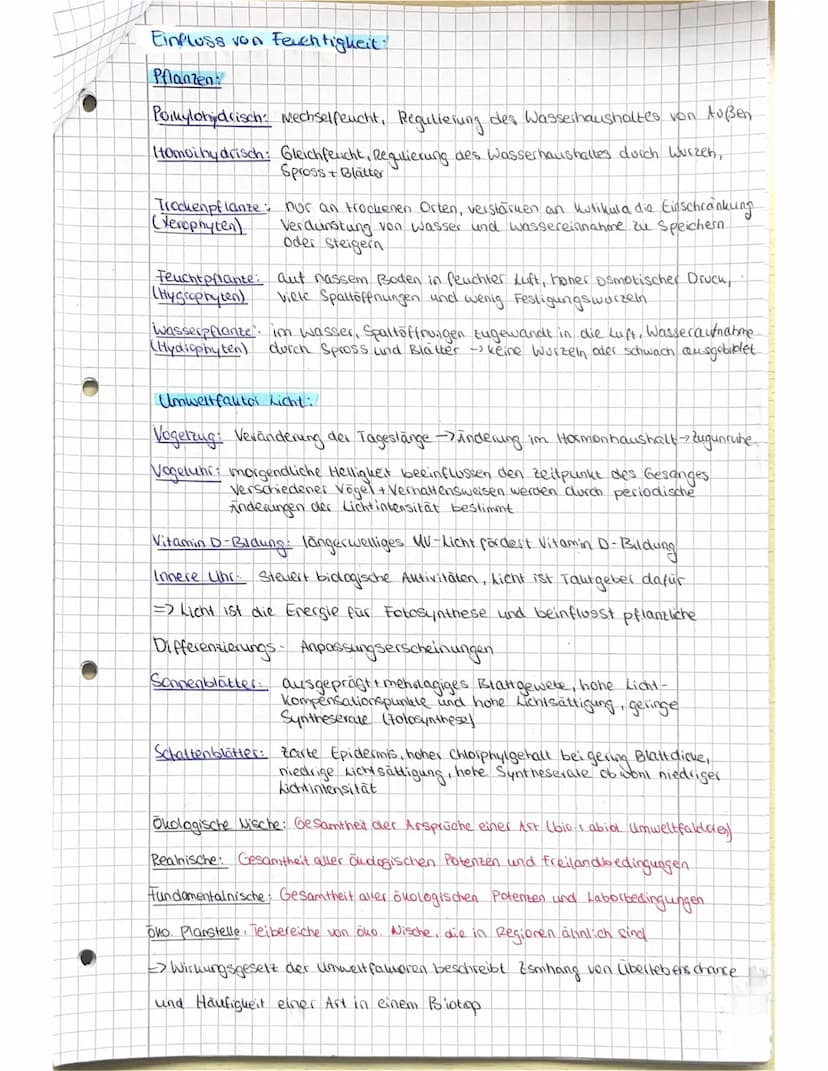 Einfluss von Feuchtigkeit:
Pflanzen:
Poikylohydrisch: Wechselfeucht, Regulierung des Wasserhaushaltes von Außen
Homoihydrisch: Gleichfeucht, Regulierung des Wasserhaushaltes durch Wurzeln,
Spross + Blätter
Trockenpflanze: nur an trockenen Orten, verstärken an Kutikula die Einschränkung
(Xerophyten) Verdunstung von Wasser und Wassereinnahme zu Speichern
oder steigern
Feuchtpflanze: auf nassem Boden in feuchter Luft, hoher osmotischer Druck,
(Hygrophyten) viele Spaltöffnungen und wenig Festigungswurzeln
Wasserpflanze: im Wasser, Spaltöffnungen zugewandt in die Luft, Wasseraufnahme
(Hydrophyten) durch Spross und Blätter -> keine Wurzeln oder schwach ausgebildet
Umweltfaktor Licht:
Vogelzug: Veränderung der Tageslänge -> Änderung im Hormonhaushalt -> Zugunruhe
Vogeluhr: morgendliche Helligkeit beeinflussen den Zeitpunkt des Gesanges
verschiedener Vögel + Verhaltensweisen werden durch periodische
Änderungen der Lichtintensität bestimmt
Vitamin D-Bildung: längerwelliges UV-Licht fördert Vitamin D-Bildung
Innere Uhr: Steuert biologische Aktivitäten, Licht ist Taktgeber dafür
=> Licht ist die Energie für Fotosynthese und beinflusst pflanzliche
Differenzierungs- Anpassungserscheinungen
Sonnenblätter: ausgeprägt + mehrlagiges Blattgewebe, hohe Licht-
kompensationspunkte und hohe Lichtsättigung, geringe
Syntheserate (Fotosynthese)
Schattenblätter: zarte Epidermis, hoher Chlorphylgehalt bei gering Blattdicke,
niedrige Lichtsättigung, hohe Syntheserate obwohl niedriger
Lichtintensität
Ökologische Nische: Gesamtheit der Ansprüche einer Art (bio. + abiot. Umweltfaktoren)
Realnische: Gesamtheit aller ökologischen Potenzen und Freilandbedingungen
Fundamentalnische: Gesamtheit aller ökologischen Potenzen und Laborbedingungen
Öko. Planstelle: Teilbereiche von öko. Nische, die in Regionen ähnlich sind
=> Wirkungsgesetz der Umweltfaktoren beschreibt Zsmhang von Überlebenschance
und Häufigkeit einer Art in einem Biotop